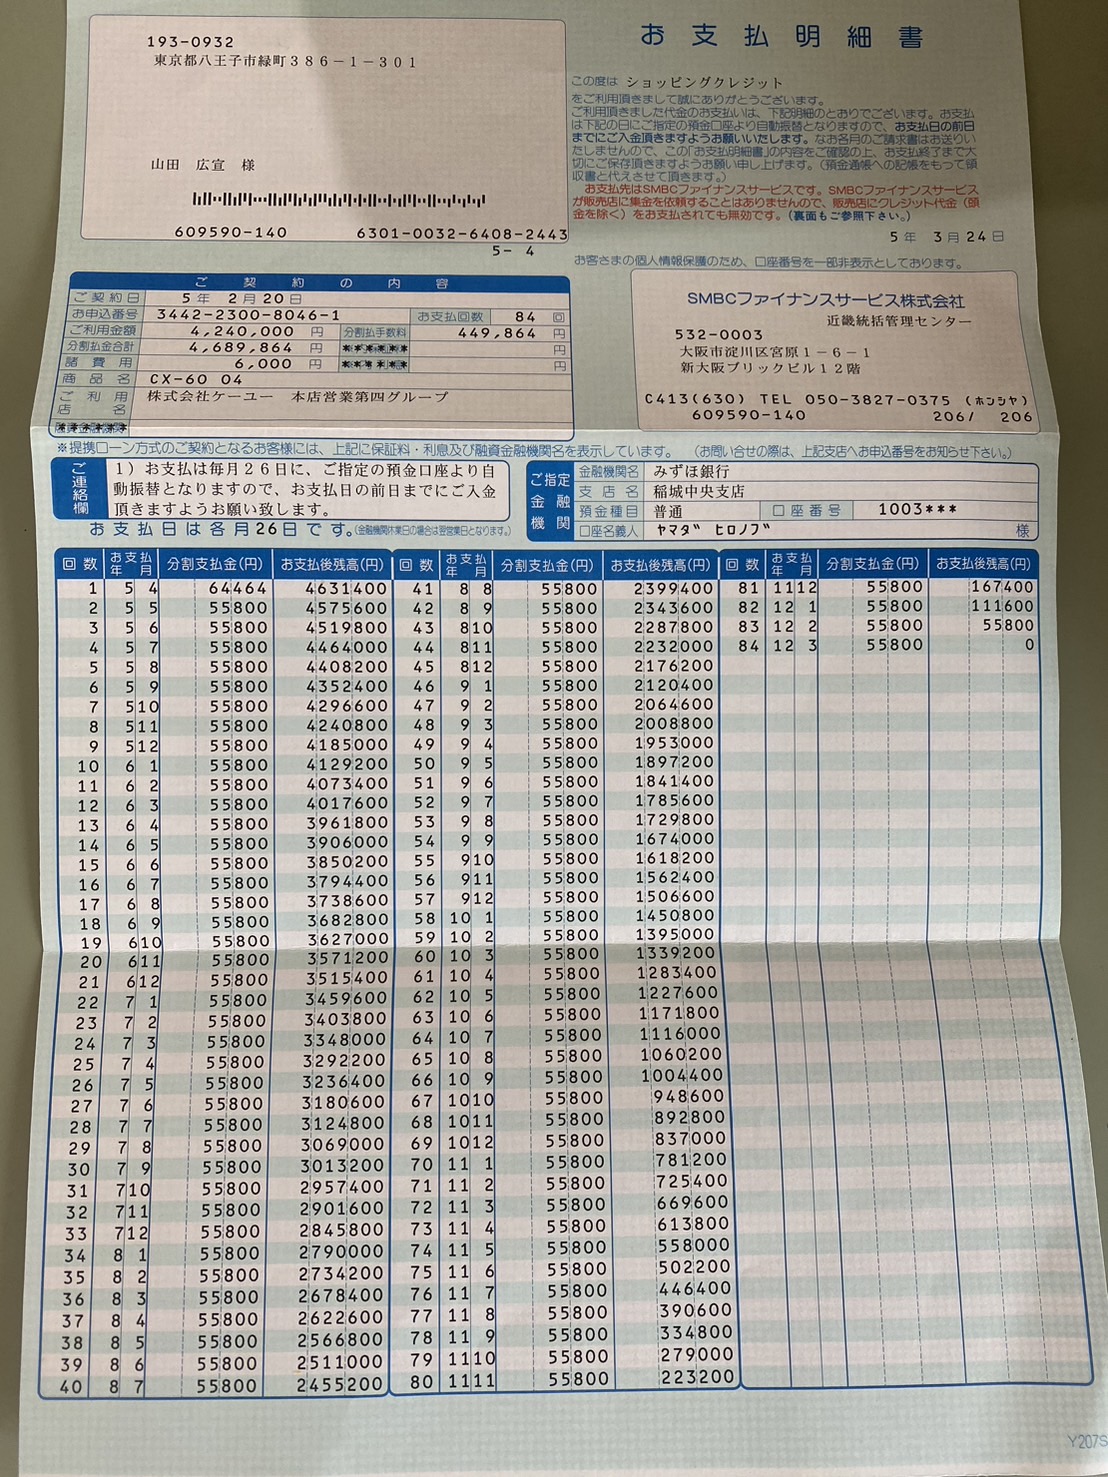 お支払明細書
193-0932
東京都八王子市緑町386-1-301
山田 広宣 様
609590-140 6301-0032-6408-2443
5- 4
この度は ショッピングクレジット
をご利用頂きまして誠にありがとうございます。
ご利用頂きました代金のお支払いは、下記明細のとおりでございます。お支払
は下記の日にご指定の預金口座より自動振替となりますので、お支払日の前日
までにご入金頂きますようお願いいたします。なお各月のご請求書はお送りい
たしませんので、この「お支払明細書」の内容をご確認の上、お支払終了まで大
切にご保存頂きますようお願い申し上げます。(預金通帳への記帳をもって領
収書と代えさせて頂きます。)
お支払先はSMBCファイナンスサービスです。SMBCファイナンスサービス
が販売店に集金を依頼することはありませんので、販売店にクレジット代金(頭
金を除く)をお支払されても無効です。(裏面もご参照下さい。)
5年 3月24日
お客さまの個人情報保護のため、口座番号を一部非表示としております。
ご契約の内容
ご契約日 5年 2月20日
お申込番号 3442-2300-8046-1 お支払回数 84 回
ご利用金額 4,240,000 円 分割払手数料 449,864 円
分割払金合計 4,689,864 円 ****** 円
諸費用 6,000 円 ****** 円
商品名 CX-60 04
ご利用店名 株式会社ケーユー 本店営業第四グループ
SMBCファイナンスサービス株式会社
近畿統括管理センター
532-0003
大阪市淀川区宮原1-6-1
新大阪ブリックビル12階
C413(630) TEL 050-3827-0375 (ホンシヤ)
609590-140 206/ 206
※提携ローン方式のご契約となるお客様には、上記に保証料・利息及び融資金融機関名を表示しています。 (お問い合せの際は、上記支店へお申込番号をお知らせ下さい。)
ご連絡欄
1) お支払は毎月26日に、ご指定の預金口座より自
動振替となりますので、お支払日の前日までにご入金
頂きますようお願い致します。
お支払日は各月26日です。(金融機関休業日の場合は翌営業日となります。)
ご指定金融機関
金融機関名 みずほ銀行
支店名 稲城中央支店
預金種目 普通 口座番号 1003***
口座名義人 ヤマダ ヒロノブ 様
回数 お支払年月 分割支払金(円) お支払後残高(円)
1 5 4 64464 4631400
2 5 5 55800 4575600
3 5 6 55800 4519800
4 5 7 55800 4464000
5 5 8 55800 4408200
6 5 9 55800 4352400
7 5 10 55800 4296600
8 5 11 55800 4240800
9 5 12 55800 4185000
10 6 1 55800 4129200
11 6 2 55800 4073400
12 6 3 55800 4017600
13 6 4 55800 3961800
14 6 5 55800 3906000
15 6 6 55800 3850200
16 6 7 55800 3794400
17 6 8 55800 3738600
18 6 9 55800 3682800
19 6 10 55800 3627000
20 6 11 55800 3571200
21 6 12 55800 3515400
22 7 1 55800 3459600
23 7 2 55800 3403800
24 7 3 55800 3348000
25 7 4 55800 3292200
26 7 5 55800 3236400
27 7 6 55800 3180600
28 7 7 55800 3124800
29 7 8 55800 3069000
30 7 9 55800 3013200
31 7 10 55800 2957400
32 7 11 55800 2901600
33 7 12 55800 2845800
34 8 1 55800 2790000
35 8 2 55800 2734200
36 8 3 55800 2678400
37 8 4 55800 2622600
38 8 5 55800 2566800
39 8 6 55800 2511000
40 8 7 55800 2455200
回数 お支払年月 分割支払金(円) お支払後残高(円)
41 8 8 55800 2399400
42 8 9 55800 2343600
43 8 10 55800 2287800
44 8 11 55800 2232000
45 8 12 55800 2176200
46 9 1 55800 2120400
47 9 2 55800 2064600
48 9 3 55800 2008800
49 9 4 55800 1953000
50 9 5 55800 1897200
51 9 6 55800 1841400
52 9 7 55800 1785600
53 9 8 55800 1729800
54 9 9 55800 1674000
55 9 10 55800 1618200
56 9 11 55800 1562400
57 9 12 55800 1506600
58 10 1 55800 1450800
59 10 2 55800 1395000
60 10 3 55800 1339200
61 10 4 55800 1283400
62 10 5 55800 1227600
63 10 6 55800 1171800
64 10 7 55800 1116000
65 10 8 55800 1060200
66 10 9 55800 1004400
67 10 10 55800 948600
68 10 11 55800 892800
69 10 12 55800 837000
70 11 1 55800 781200
71 11 2 55800 725400
72 11 3 55800 669600
73 11 4 55800 613800
74 11 5 55800 558000
75 11 6 55800 502200
76 11 7 55800 446400
77 11 8 55800 390600
78 11 9 55800 334800
79 11 10 55800 279000
80 11 11 55800 223200
回数 お支払年月 分割支払金(円) お支払後残高(円)
81 11 12 55800 167400
82 12 1 55800 111600
83 12 2 55800 55800
84 12 3 55800 0